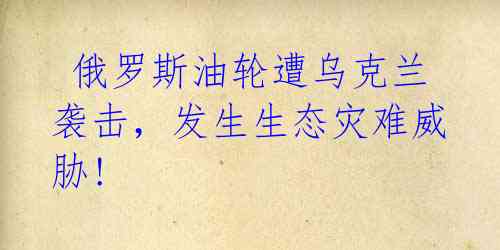 俄罗斯油轮遭乌克兰
袭击，发生生态灾难威
胁!